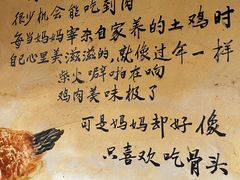 很少机会能吃到肉
每当妈妈宰杀自家养的土鸡时
自己心里美滋滋的，就像过年一样
柴火噼啪在响
鸡肉美味极了
可是妈妈却好像
只喜欢吃骨头